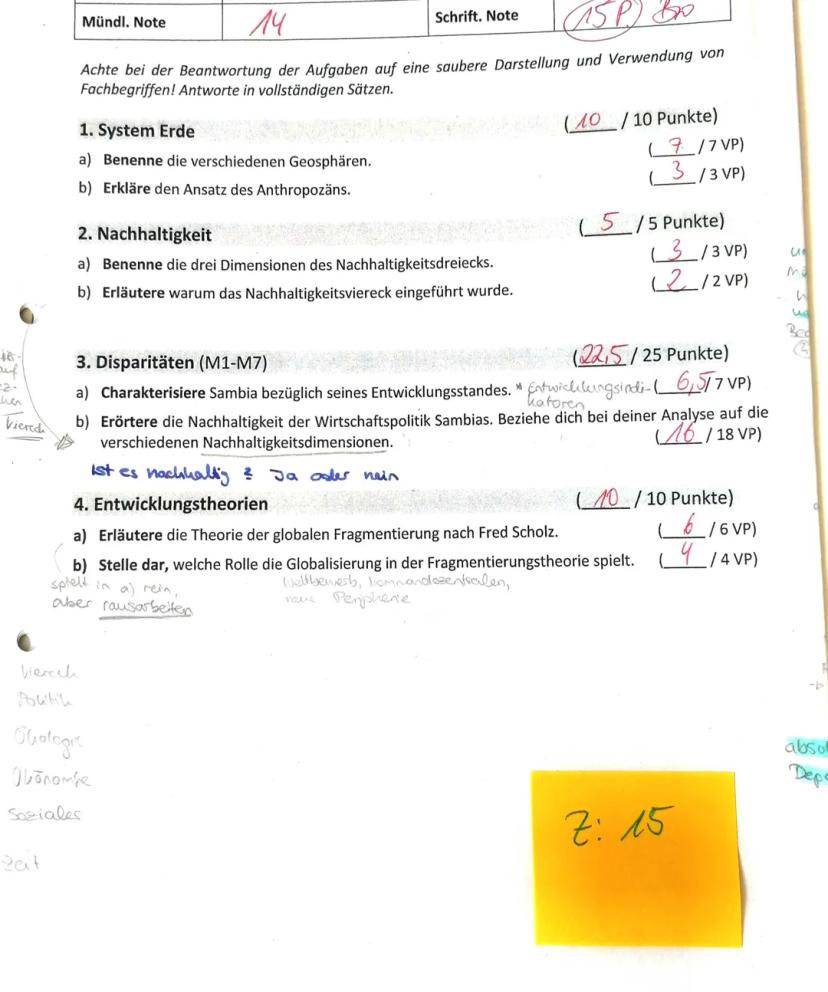 Mündl. Note 14 Schrift. Note 15P.
Achte bei der Beantwortung der Aufgaben auf eine saubere Darstellung und Verwendung von
Fachbegriffen! Antworte in vollständigen Sätzen.
1. System Erde (10 / 10 Punkte)
a) Benenne die verschiedenen Geosphären. (7 / 7 VP)
b) Erkläre den Ansatz des Anthropozäns. (3 / 3 VP)
2. Nachhaltigkeit (5 / 5 Punkte)
a) Benenne die drei Dimensionen des Nachhaltigkeitsdreiecks. (3 / 3 VP)
b) Erläutere warum das Nachhaltigkeitsviereck eingeführt wurde. (2 / 2 VP)
3. Disparitäten (M1-M7) (22,5 / 25 Punkte)
a) Charakterisiere Sambia bezüglich seines Entwicklungsstandes. * Entwicklungsindi- (6,5/ 7 VP)
katoren
b) Erörtere die Nachhaltigkeit der Wirtschaftspolitik Sambias. Beziehe dich bei deiner Analyse auf die
Viereck
verschiedenen Nachhaltigkeitsdimensionen. (16 / 18 VP)
Ist es nachhaltig ? Ja oder nein
4. Entwicklungstheorien (10 / 10 Punkte)
a) Erläutere die Theorie der globalen Fragmentierung nach Fred Scholz. (6 / 6 VP)
b) Stelle dar, welche Rolle die Globalisierung in der Fragmentierungstheorie spielt. (4 / 4 VP)
spielt in a) rein,
aber rausarbeiten
Wettbewerb, Kommandozentralen,
neue Peripherie
Viereck
Politik
Ökologie
Ökonomie
Soziales
Zeit
absol
Depe
Z: 15